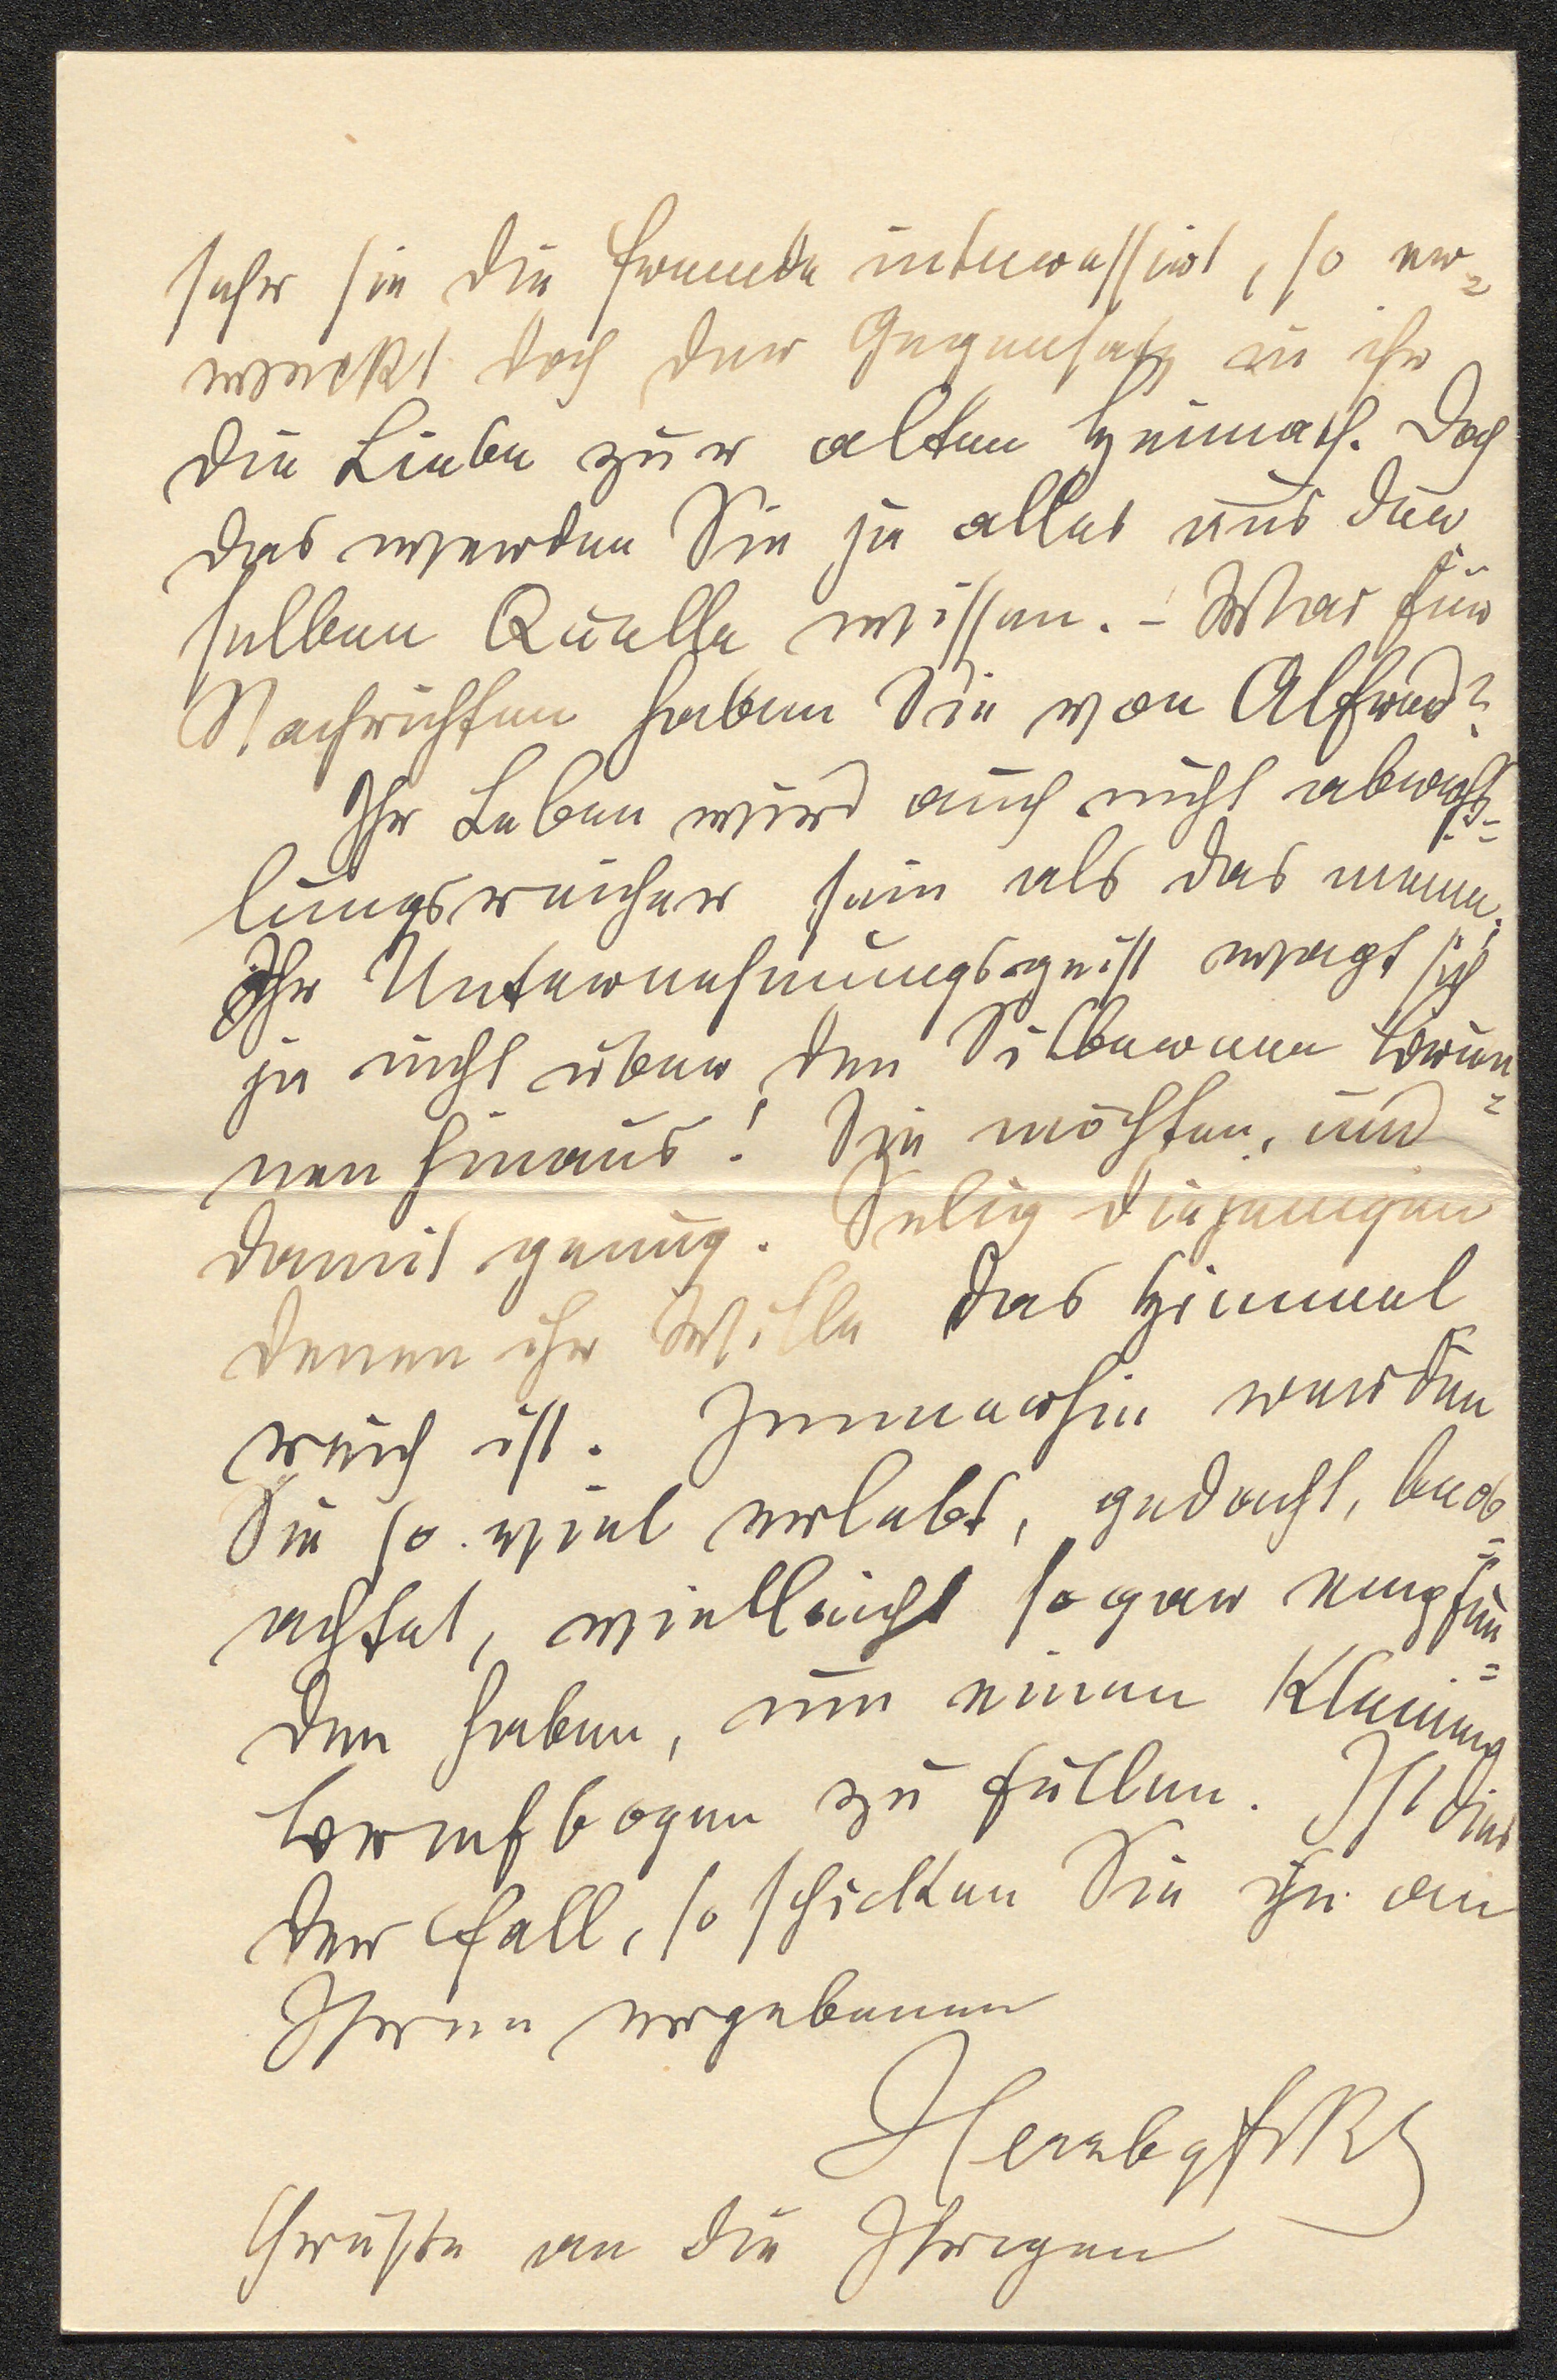 sehr sie die Fremde interessirt, so er-
weckt doch der Gegensatz in ihr
die Liebe zur alten Heimath. Doch
das werden Sie ja alles aus der
selben Quelle wissen. – Was für
Nachrichten haben Sie von Alfred?
Ihr Leben wird auch nicht abwechs-
lungsreicher sein als das meine.
Ihr Unternehmungsgeist wagt sich
ja nicht über den Silbernen Brun-
nen hinaus! Sie möchten, und
damit genug. Selig diejenigen
denen ihr Wille das Himmel
reich ist. Immerhin werden
Sie so viel erlebt, gedacht, beob-
achtet, vielleicht sogar empfun-
den haben, um einen kleinen
Briefbogen zu füllen. Ist dies
der Fall, so schicken Sie ihn an
Ihren ergebenen
Grüße an die Ihrigen